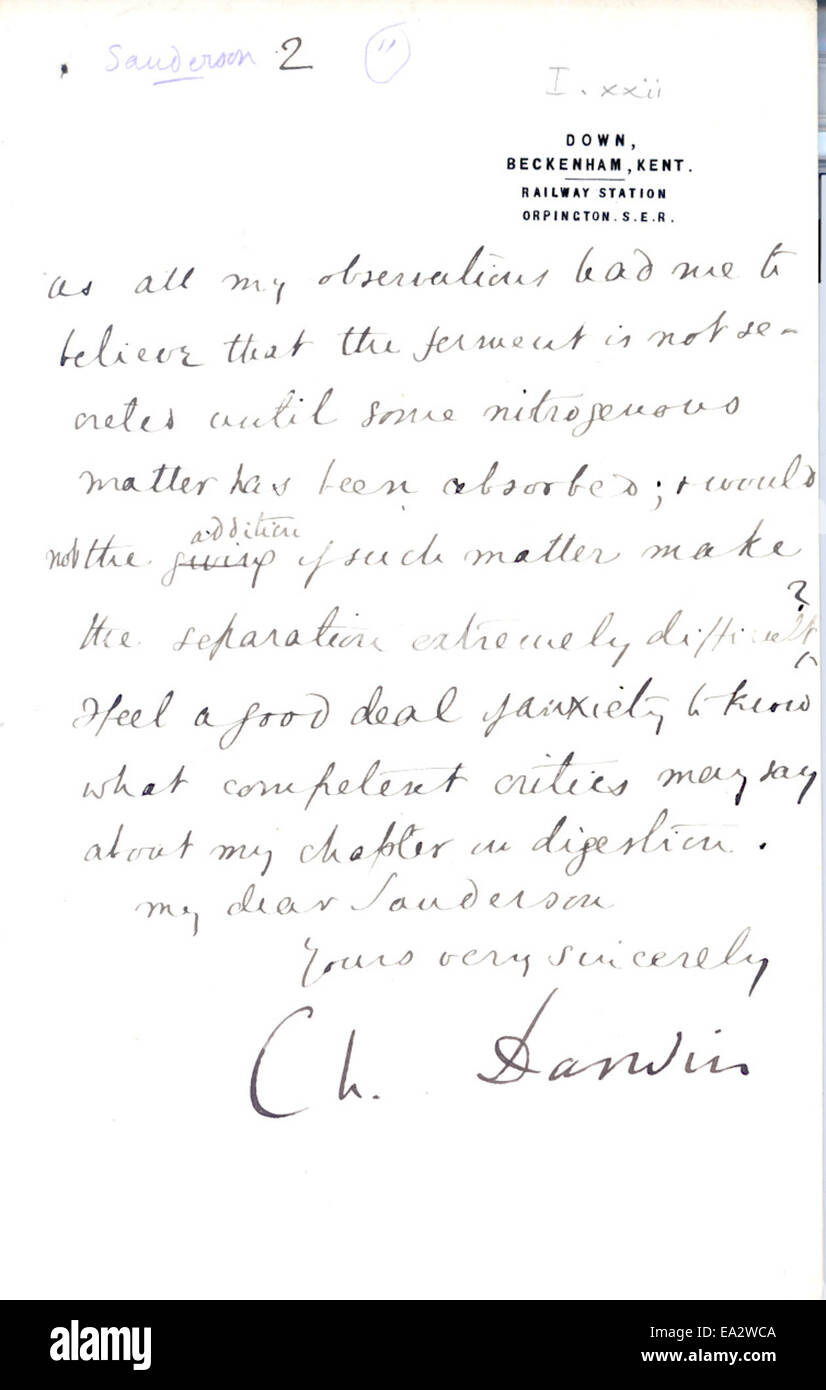 Sanderson 2 (11)
I. xxii
DOWN,
BECKENHAM, KENT.
RAILWAY STATION
ORPINGTON. S.E.R.
as all my observations lead me to
believe that the ferment is not se-
creted until some nitrogenous
matter has been absorbed; & would
addition
not the giving of such matter make
?
the separation extremely difficult
I feel a good deal of anxiety to know
what competent critics may say
about my chapter on digestion.
My dear Sanderson
Yours very sincerely
Ch. Darwin
alamy
Image ID: EA2WCA
www.alamy.com